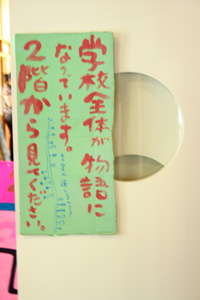 学校全体が物語に
なっています。
2階から見てください。